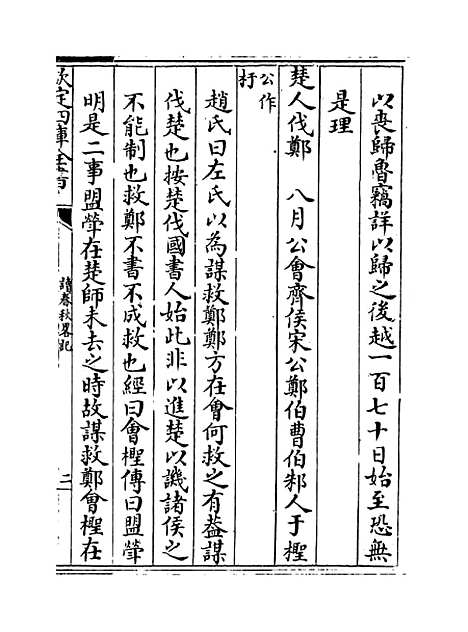 以喪歸魯竊詳以歸之後越一百七十日始至恐無
是理
楚人伐鄭　八月公會齊侯宋公鄭伯曹伯邾人于檉
公作
朾
趙氏曰左氏以為謀救鄭鄭方在會何救之有葢謀
伐楚也按楚伐國書人始此非以進楚以譏諸侯之
不能制也救鄭不書不成救也經曰會檉傳曰盟犖
明是二事盟犖在楚師未去之時故謀救鄭會檉在
欽定四庫全書
讀春秋畧記
二